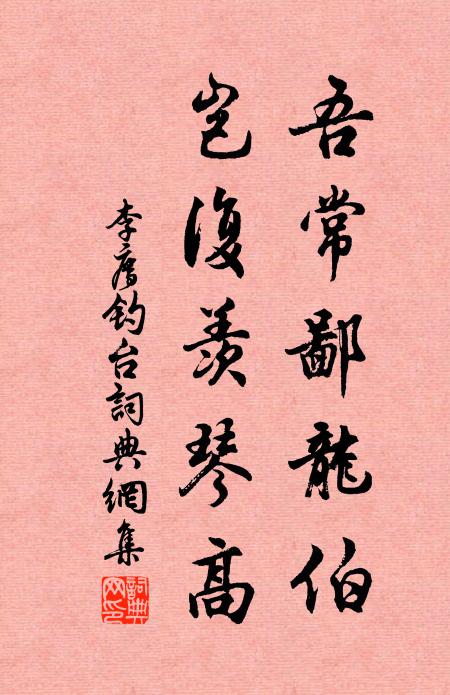 吾常鄙龍伯
豈復羨琴高
李廌釣台詞典網集
詞典網印